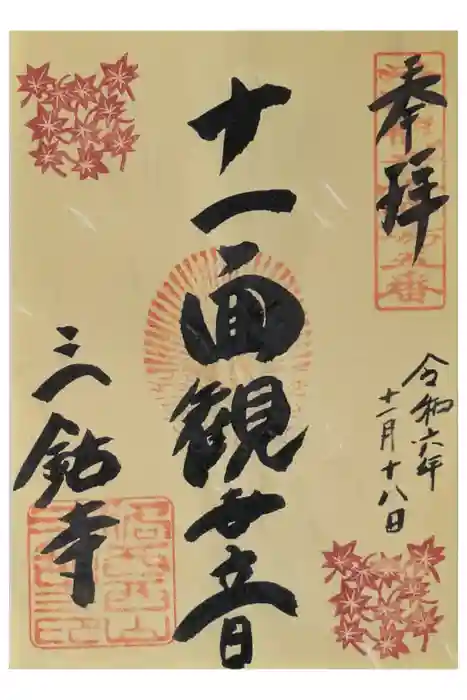 奉拝
令和六年
十一月十八日
十一面観世音
三鈷寺